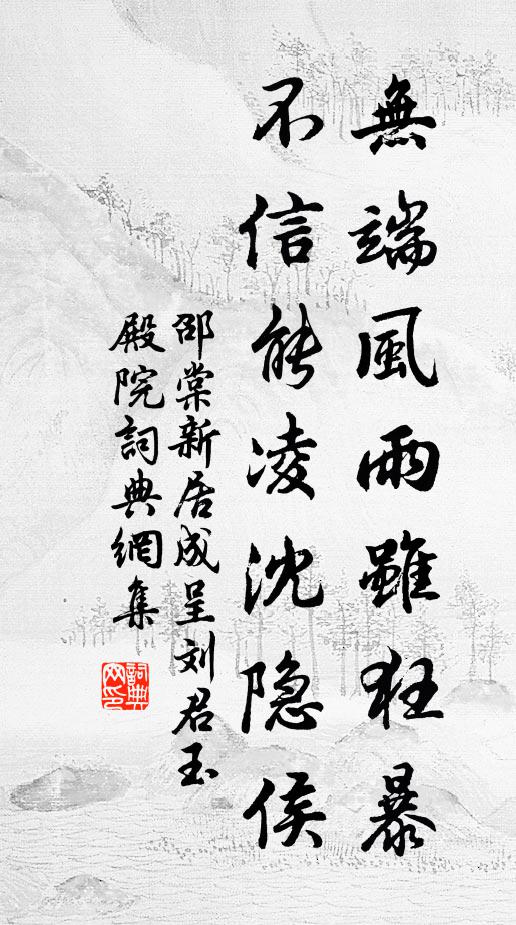 無端風雨雖狂暴
不信能凌沈隐侯
邵棠新居成呈刘君玉
殿院詞典網集
詞典網印